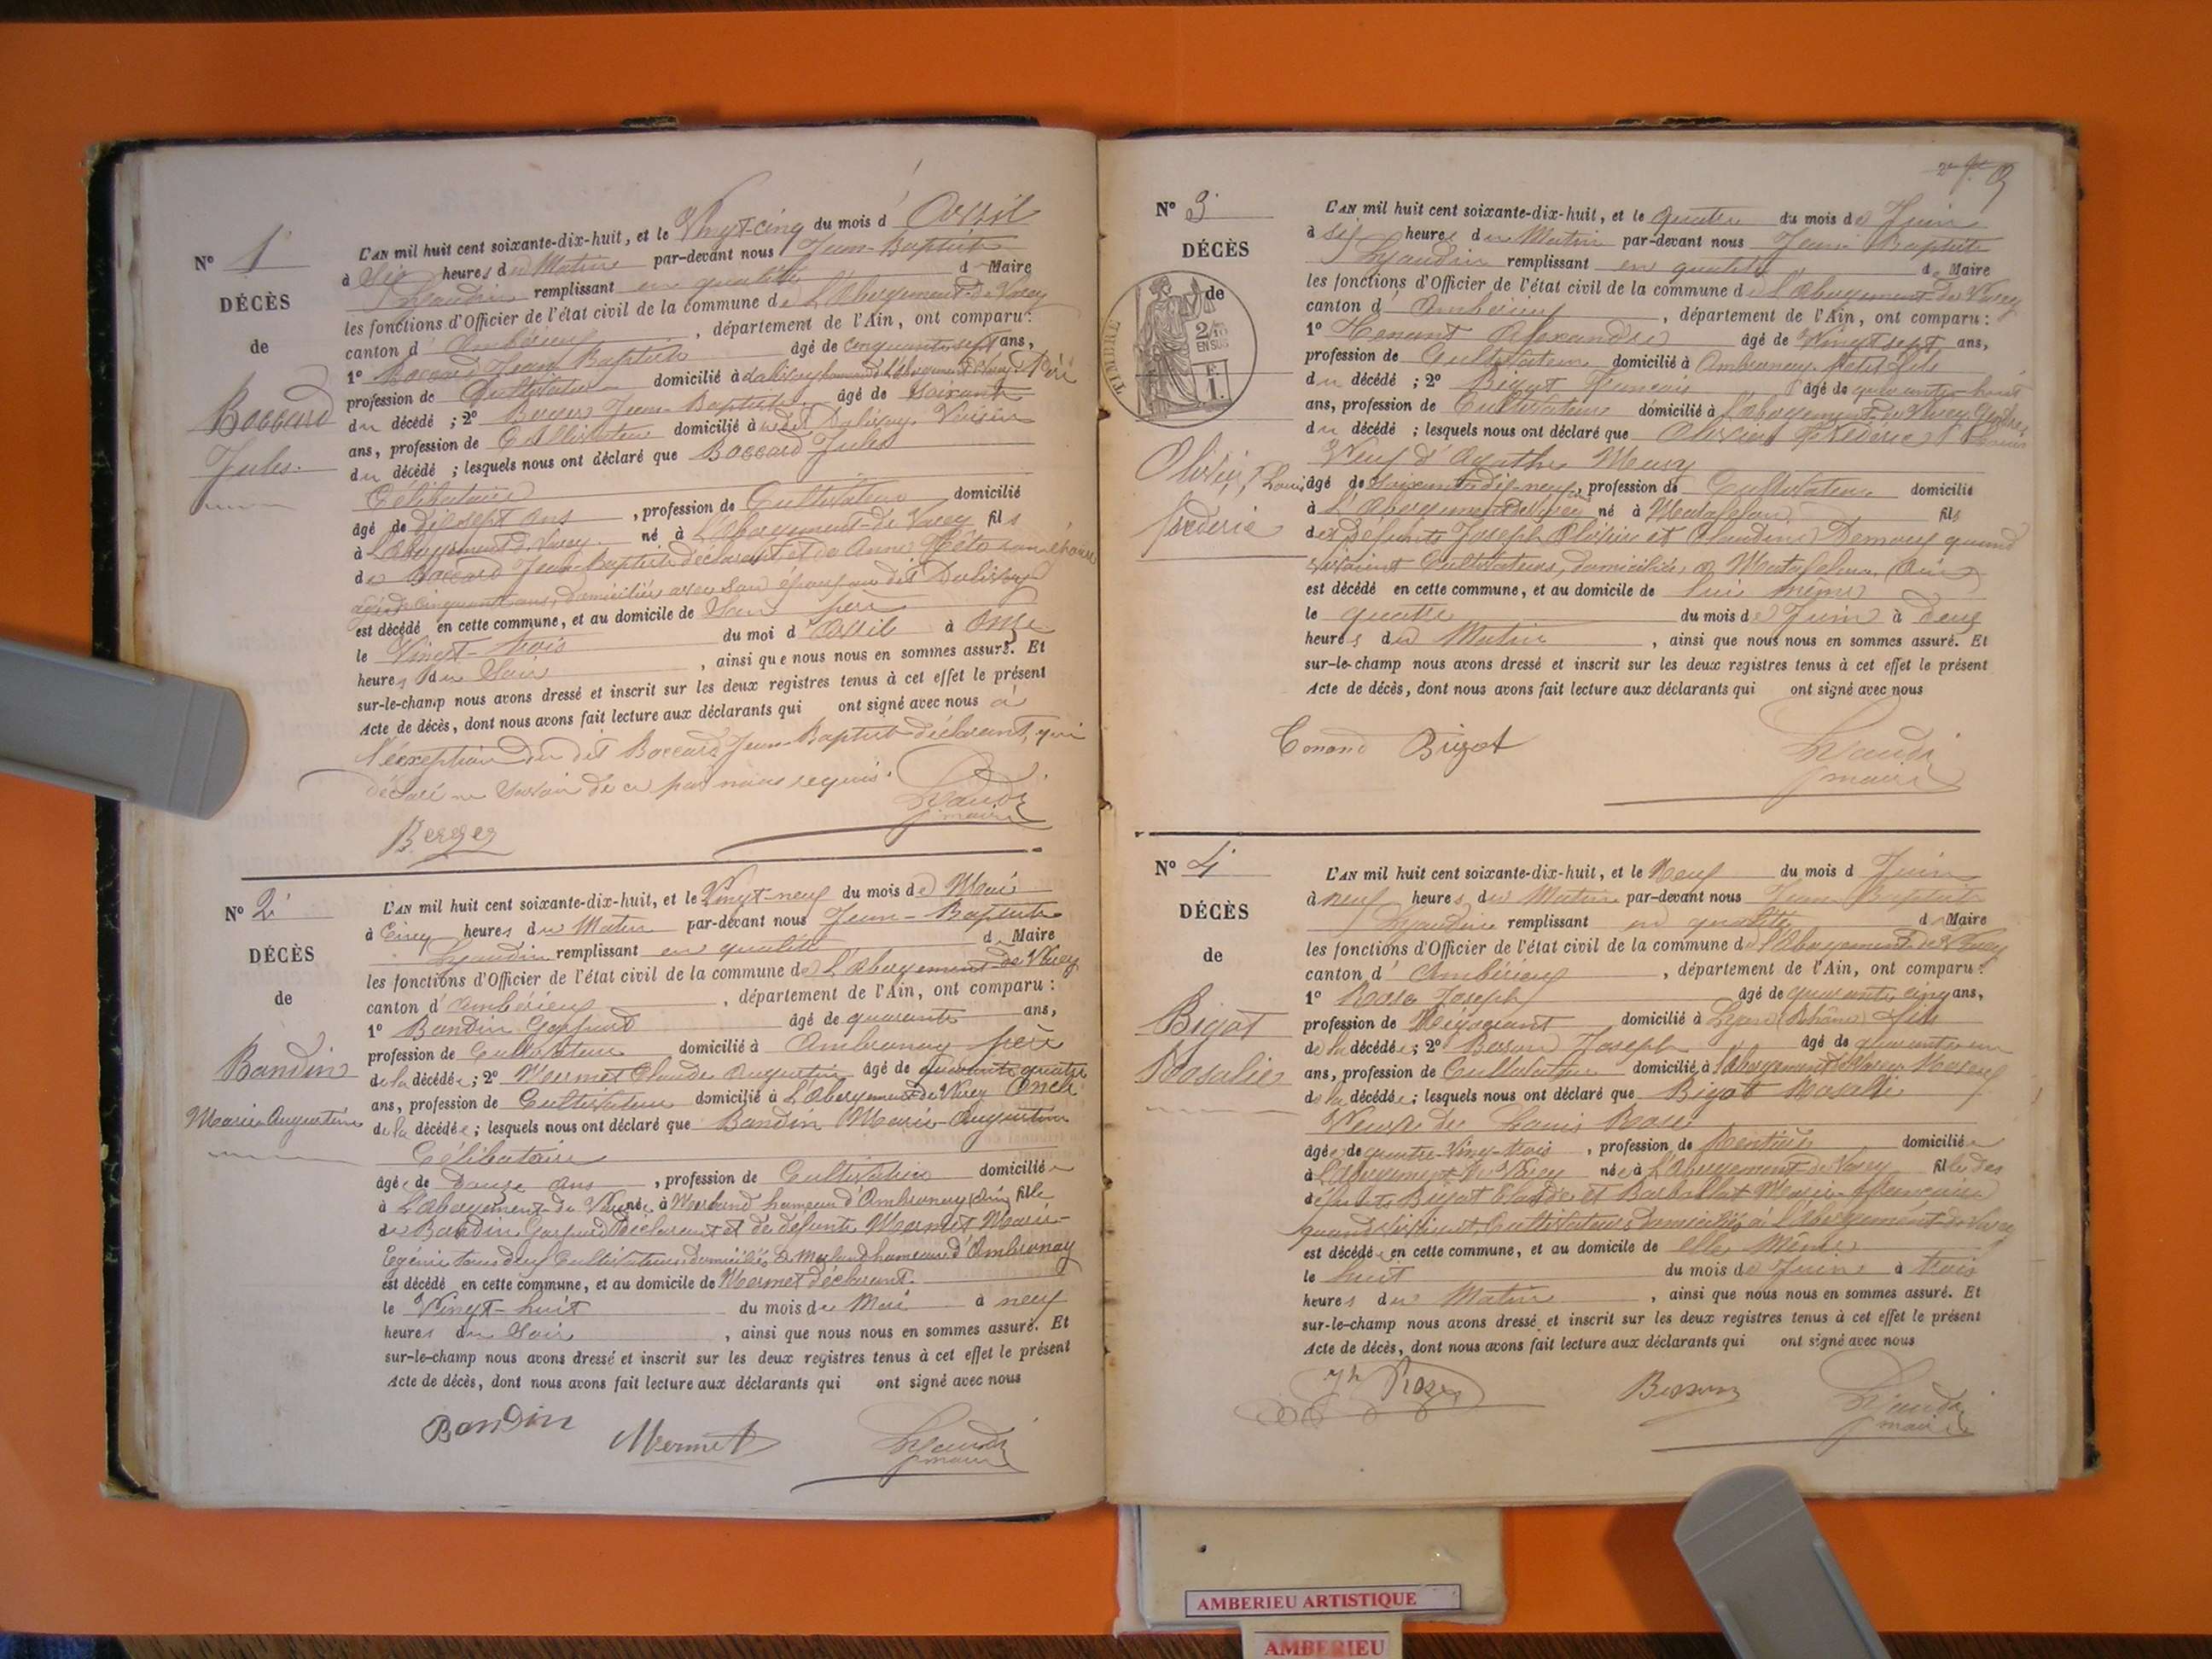 N° 1
DÉCÈS
de
Boccard
Jules.
L'AN mil huit cent soixante-dix-huit, et le Vingt-cinq du mois d'Avril
à Six heures du Matin par-devant nous Jean-Baptiste
Lyaudin remplissant en qualité de Maire
les fonctions d'Officier de l'état civil de la commune de L'Abergement-de-Varey
canton d'Ambérieu, département de l'Ain, ont comparu:
1° Boccard Jean Baptiste âgé de cinquante-sept ans,
profession de Cultivateur domicilié à hameau de l'Abergement de Varey Père
du décédé ; 2° Berger Jean-Baptiste âgé de soixante
ans, profession de Cultivateur domicilié à Voisin
du décédé ; lesquels nous ont déclaré que Boccard Jules
Célibataire
âgé de dix sept ans, profession de Cultivateur domicilié
à L'Abergement de Varey né à L'Abergement-de-Varey fils
de Boccard Jean-Baptiste déclarant et de Anne son épouse
âgée de cinquante ans, domiciliée avec son époux au dit
est décédé en cette commune, et au domicile de Son père
le Vingt-trois du moi d'Avril à onze
heures du Soir, ainsi que nous nous en sommes assuré. Et
sur-le-champ nous avons dressé et inscrit sur les deux registres tenus à cet effet le présent
Acte de décès, dont nous avons fait lecture aux déclarants qui ont signé avec nous à
l'éxception du dit Boccard Jean-Baptiste déclarant, qui
déclaré ne savoir de ce par nous requis.
Berger
Lyaudin
maire
N° 2
DÉCÈS
de
Bandin
Marie-Augustine
L'AN mil huit cent soixante-dix-huit, et le Vingt-neuf du mois de Mai
à Cinq heures du Matin par-devant nous Jean-Baptiste
Lyaudin remplissant en qualité de Maire
les fonctions d'Officier de l'état civil de la commune de L'Abergement de Varey
canton d'Ambérieu, département de l'Ain, ont comparu :
1° Bandin Gaspard âgé de quarante ans,
profession de Cultivateur domicilié à Ambronay père
de la décédée ; 2° Mermet Claude Augustin âgé de quarante quatre
ans, profession de Cultivateur domicilié à L'Abergement de Varey Oncle
de la décédée ; lesquels nous ont déclaré que Bandin Marie-Augustine
Célibataire
âgée de Douze ans, profession de Cultivatrice domiciliée
à L'Abergement de Varey née à Merland hameau d'Ambronay (Ain) fille
de Bandin Gaspard Déclarant et de défunte Mermet Marie-
tous deux Cultivateurs domiciliés à Merland hameau d'Ambronay
est décédé en cette commune, et au domicile de Mermet déclarant.
le Vingt-huit du mois de Mai à neuf
heures du Soir, ainsi que nous nous en sommes assuré. Et
sur-le-champ nous avons dressé et inscrit sur les deux registres tenus à cet effet le présent
Acte de décès, dont nous avons fait lecture aux déclarants qui ont signé avec nous
Bandin
Mermet
Lyaudin
maire
N° 3
DÉCÈS
de
TIMBRE
2/10
EN SUS
F
1.
Olivier, Louis
Frédéric
L'AN mil huit cent soixante-dix-huit, et le quatre du mois de Juin
à six heures du Matin par-devant nous Jean Baptiste
Lyaudin remplissant en qualité de Maire
les fonctions d'Officier de l'état civil de la commune de L'Abergement de Varey
canton d'Ambérieu, département de l'Ain, ont comparu :
1° Alexandre âgé de Vingt sept ans,
profession de Cultivateur domicilié à Ambronay Petit fils
du décédé ; 2° Bigot François âgé de quarante-huit
ans, profession de Cultivateur domicilié à l'abergement de Varey Gendre
du décédé ; lesquels nous ont déclaré que Olivier Frédéric
Veuf d'Agathe
âgé de soixante dix-neuf, profession de Cultivateur domicilié
à L'Abergement-de-Varey né à Matafelon fils
des Défunts Joseph Olivier et Claudine quand
vivaient Cultivateurs, domiciliés à Matafelon (Ain)
est décédé en cette commune, et au domicile de lui même
le quatre du mois de Juin à deux
heures du Matin, ainsi que nous nous en sommes assuré. Et
sur-le-champ nous avons dressé et inscrit sur les deux registres tenus à cet effet le présent
Acte de décès, dont nous avons fait lecture aux déclarants qui ont signé avec nous
Bigot
Lyaudin
maire
N° 4
DÉCÈS
de
Bigot
Rosalie
L'AN mil huit cent soixante-dix-huit, et le Neuf du mois d Juin
à neuf heures du Matin par-devant nous Jean Baptiste
Lyaudin remplissant en qualité de Maire
les fonctions d'Officier de l'état civil de la commune de l'Abergement de Varey
canton d'Ambérieu, département de l'Ain, ont comparu :
1° Rose Joseph âgé de quarante cinq ans,
profession de Négociant domicilié à Lyon (Rhône) fils
de la décédée ; 2° Besson Joseph âgé de quarante un
ans, profession de Cultivateur domicilié à l'abergement de Varey Neveu
de la décédée ; lesquels nous ont déclaré que Bigot Rosalie
Veuve de Louis Rose
âgée de quatre-Vingt-trois, profession de Rentière domiciliée
à L'Abergement-de-Varey née à L'Abergement-de-Varey fille des
défunts Bigot Claude et Marie Françoise
quand vivaient Cultivateurs domiciliés à L'Abergement-de-Varey
est décédée en cette commune, et au domicile de elle Même
le huit du mois de Juin à trois
heures du Matin, ainsi que nous nous en sommes assuré. Et
sur-le-champ nous avons dressé et inscrit sur les deux registres tenus à cet effet le présent
Acte de décès, dont nous avons fait lecture aux déclarants qui ont signé avec nous
Jh Roze
Besson
Lyaudin
maire
AMBERIEU ARTISTIQUE
AMBERIEU